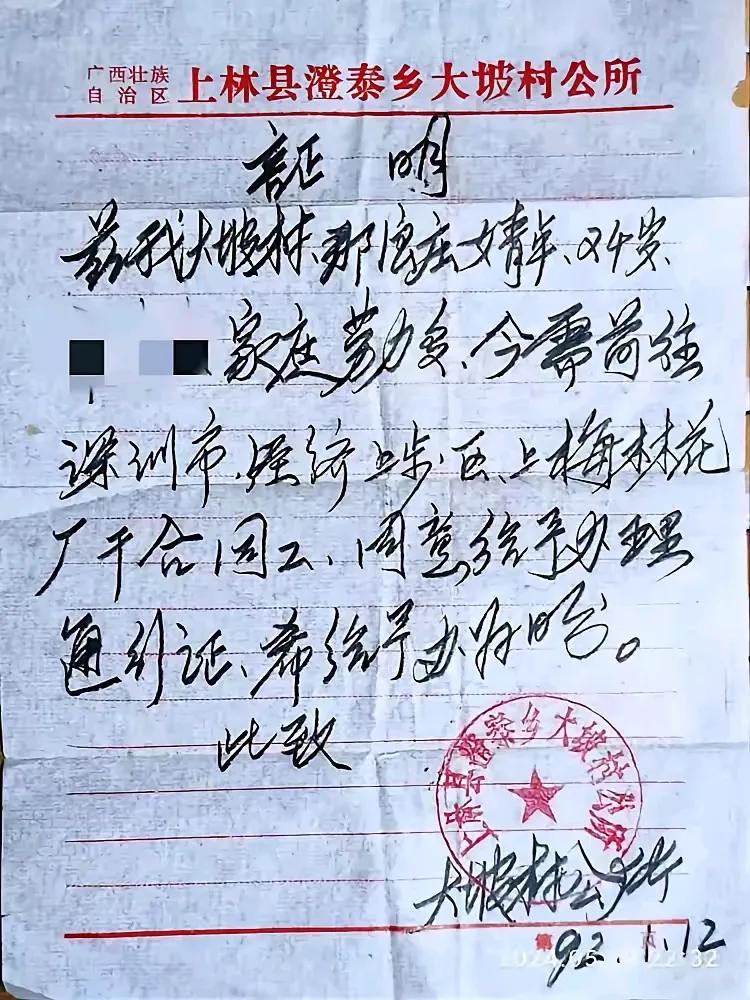 广西壮族
自治区 上林县澄泰乡大坡村公所
証 明
兹我大坡林、那浪庄女青年、24岁、
家庭劳力多、今需前往
深圳市、经济上步区、上梅林花
厂干合同工、同意给予办理
通行证、希给予办好
此致
上林县澄泰乡大坡村公所
大坡村公所
第 页
92.1.12